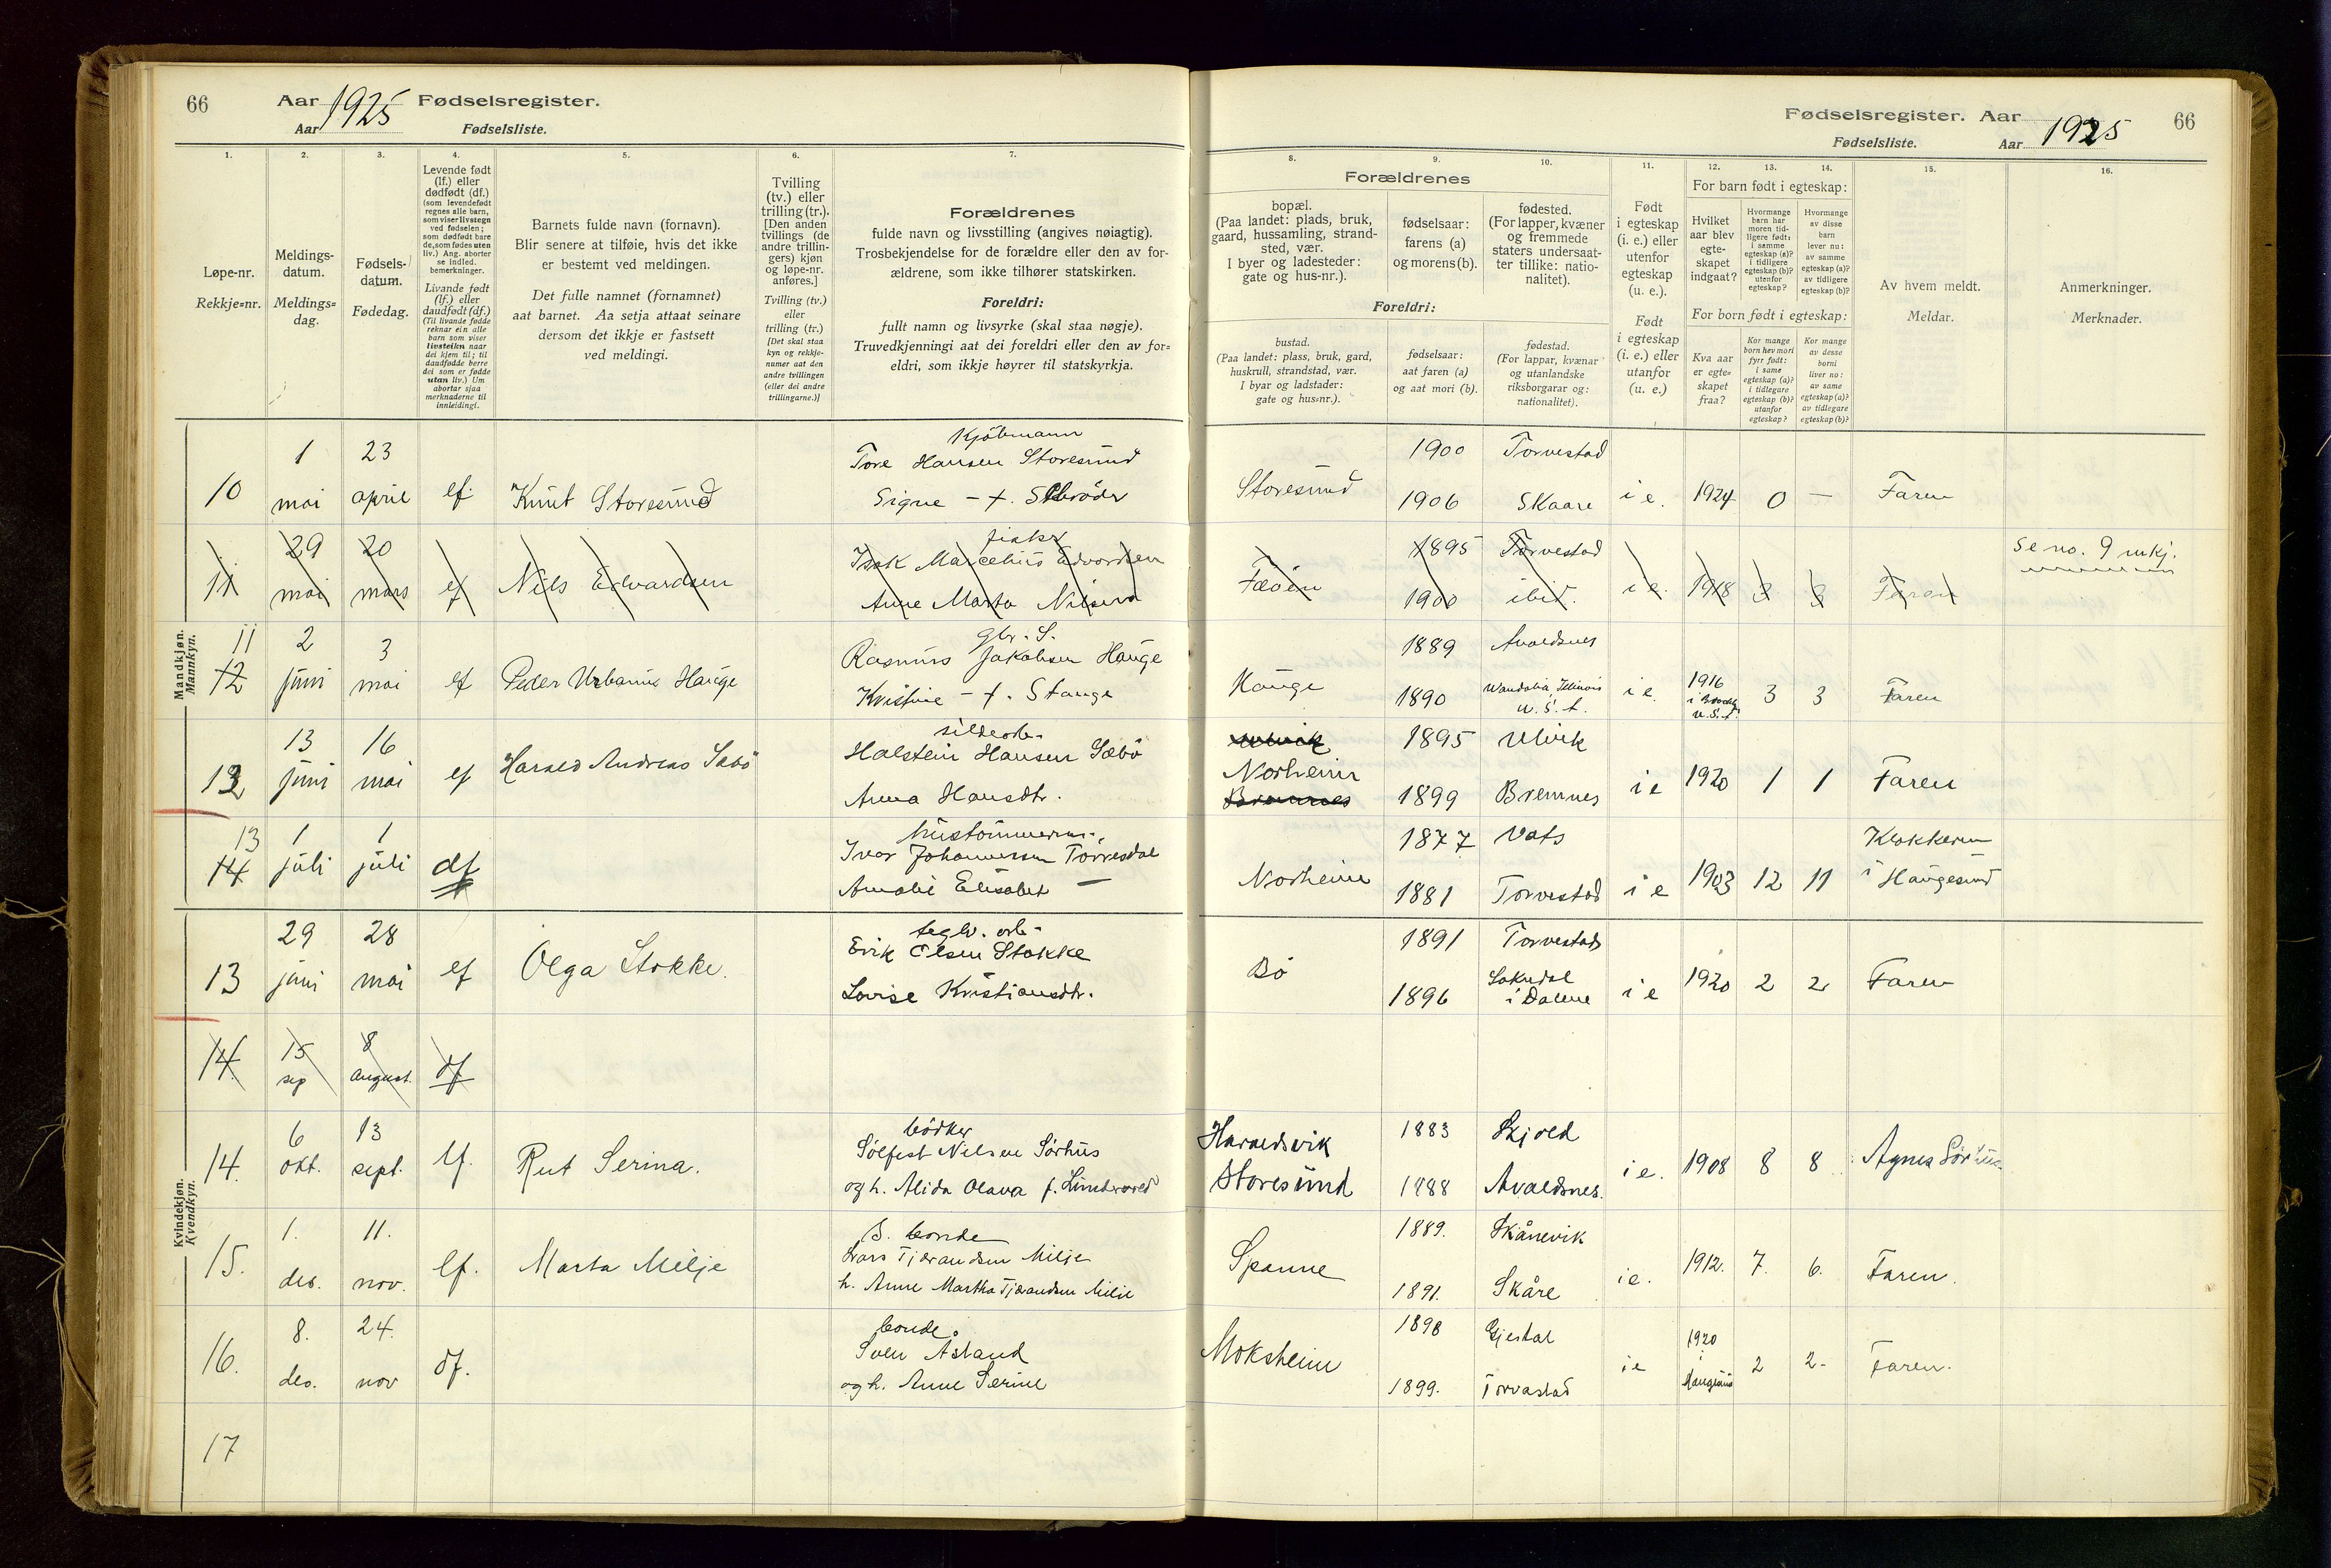 66 Aar 1925 Fødselsregister.
Aar Fødselsliste.
1. 2. 3. 4. 5. 6. 7.
Løpe-nr.
Rekkje=nr.
Meldings-
datum.
Meldings=
dag.
Fødsels-
datum.
Fødedag.
Levende født
(lf.) eller
dødfødt (df.)
(som levendefødt
regnes alle barn,
som viser livstegn
ved fødselen;
som dødfødt bare
de, som fødes uten
liv.) Ang. aborter
se indled.
bemerkninger.
Livande født
(lf.) eller
daudfødt (df.)
(Til livande fødde
reknar ein alle
barn som viser
livsteikn naar
dei kjem til; til
daudfødde berre
dei som er fødde
utan liv.) Um
abortar sjaa
merknaderne til
innleidingi.
Barnets fulde navn (fornavn).
Blir senere at tilføie, hvis det ikke
er bestemt ved meldingen.
Det fulle namnet (fornamnet)
aat barnet. Aa setja attaat seinare
dersom det ikkje er fastsett
ved meldingi.
Tvilling
(tv.) eller
trilling (tr.).
[Den anden
tvillings (de
andre trillin-
gers) kjøn
og løpe-nr.
anføres.]
Tvilling (tv.)
eller
trilling (tr.)
[Det skal staa
kyn og rekkje-
numer aat den
andre tvillingen
(eller dei andre
trillingarne.)]
Forældrenes
fulde navn og livsstilling (angives nøiagtig).
Trosbekjendelse for de forældre eller den av for-
ældrene, som ikke tilhører statskirken.
Foreldri:
fullt namn og livsyrke (skal staa nøgje).
Truvedkjenningi aat dei foreldri eller den av for=
eldri, som ikkje høyrer til statskyrkja.
Fødselsregister. Aar 1925 66
Fødselsliste. Aar
8. 9. 10. 11. 12. 13. 14. 15. 16.
Forældrenes
bopæl.
(Paa landet: plads, bruk,
gaard, hussamling, strand-
sted, vær.
I byer og ladesteder:
gate og hus-nr.).
fødselsaar:
farens (a)
og morens (b).
fødested.
(For lapper, kvæner
og fremmede
staters undersaat-
ter tillike: natio-
nalitet).
Foreldri:
bustad.
(Paa landet: plass, bruk, gard,
huskrull, strandstad, vær.
I byar og ladstader:
gate og hus=nr.).
fødselsaar:
aat faren (a)
og aat mori (b).
fødestad.
(For lappar, kvænar
og utanlandske
riksborgarar og:
nationalitet).
Født
i egteskap
(i. e.) eller
utenfor
egteskap
(u. e.).
Født
i egteskap
(i. e.) eller
utanfor
(u. e.)
For barn født i egteskap:
Hvilket
aar blev
egte-
skapet
indgaat?
Hvormange
barn har
moren tid-
ligere født:
i samme
egteskap (a)?
i tidligere
egteskap (b)?
utenfor
egteskap?
Hvormange
av disse
barn
lever nu:
av samme
egteskap (a)?
av tidligere
egteskap (b)?
For born født i egteskap:
Kva aar
er egte=
skapet
fraa?
Kor mange
born hev mori
fyrr født:
i same
egteskap (a)?
i tidlegare
egteskap (b)?
utanfor
egteskap?
Kor mange
av desse
borni
liver no:
av same
egteskap (a)?
av tidlegare
egteskap (b)?
Av hvem meldt.
Meldar.
Anmerkninger.
Merknader.
Mandkjøn.
Mannkyn.
10 1 mai 23 april lf. Knut Storesund
Kjøbmann
Tore Hansen Storesund
Signe — f. Schrøder
Storesund 1900 Torvestad
1906 Skaare i e. 1924 0 — Faren
11 29 mai 20 mars lf Nils Edvardsen
fisker
Isak Marcelius Edvardsen
Anne Marta Nilsen
Fæøen 1895 Torvestad
1900 ibid. i e. 1918 3 3 Faren se no. 9 mkj.
11
12 2 juni 3 mai lf Peder Urbanus Hauge
gbr. S.
Rasmus Jakobsen Hauge
Kristine — f. Stange
Hauge 1889 Avaldsnes
1890 Wandalia, Illinois U.S.A. i e. 1916 3 3 Faren
12 13 juni 16 mai lf Harald Andreas Sæbö
sildearb.
Halstein Hansen Sæbö
Anna Hansdtr.
Norheim
Bremnes
1895 Ulvik
1899 Bremnes i e 1920 1 1 Faren
13
14 1 juli 1 juli df
hustømmerm.
Ivar Johannesen Torvesdal
Amalie Elisabet —
Norheim 1877 Vats
1881 Torvestad i e 1903 12 11 Klokkeren
i Haugesund
Kvindekjøn.
Kvendkyn.
13 29 juni 28 mai lf Olga Stokke.
teglv. arb.
Erik Olsen Stokke
Lovise Kristiansdtr.
Bö 1891 Torvestad
1896 Sokndal
i Dalene i e 1920 2 2 Faren
14. 15 sep 8 august. df
14. 6 okt. 13 sept. lf. Rut Serina.
bödker
Sölfest Nilsen Sörhus
og h. Alida Olava f.
Haraldsvik
Storesund
1883 Skjold
1888 Avaldsnes. i e. 1908 8 8 Agnes Sörhus
15. 1. des. 11. nov. lf. Marta Milje
S. bonde
Lars Tjærandsen Milje
h. Anne Martha Tjærandsen Milje
Spanne 1889. Skånevik
1891. Skåre i e. 1912. 7. 6. Faren.
16. 8. des. 24. nov df.
bonde.
Sven Asland
og h. Anne Serine
Moksheim 1898 Gjestal
1899. Torvastad i e 1920
i
Haugesund 2 2- Faren.
17